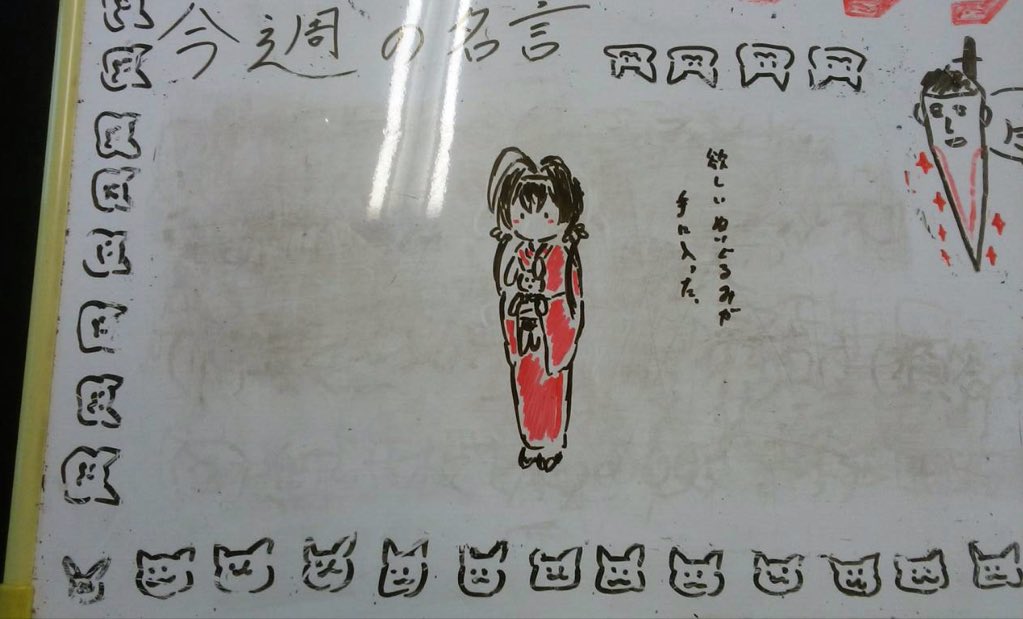 今週の名言
欲しいぬいぐるみが
手に入った。